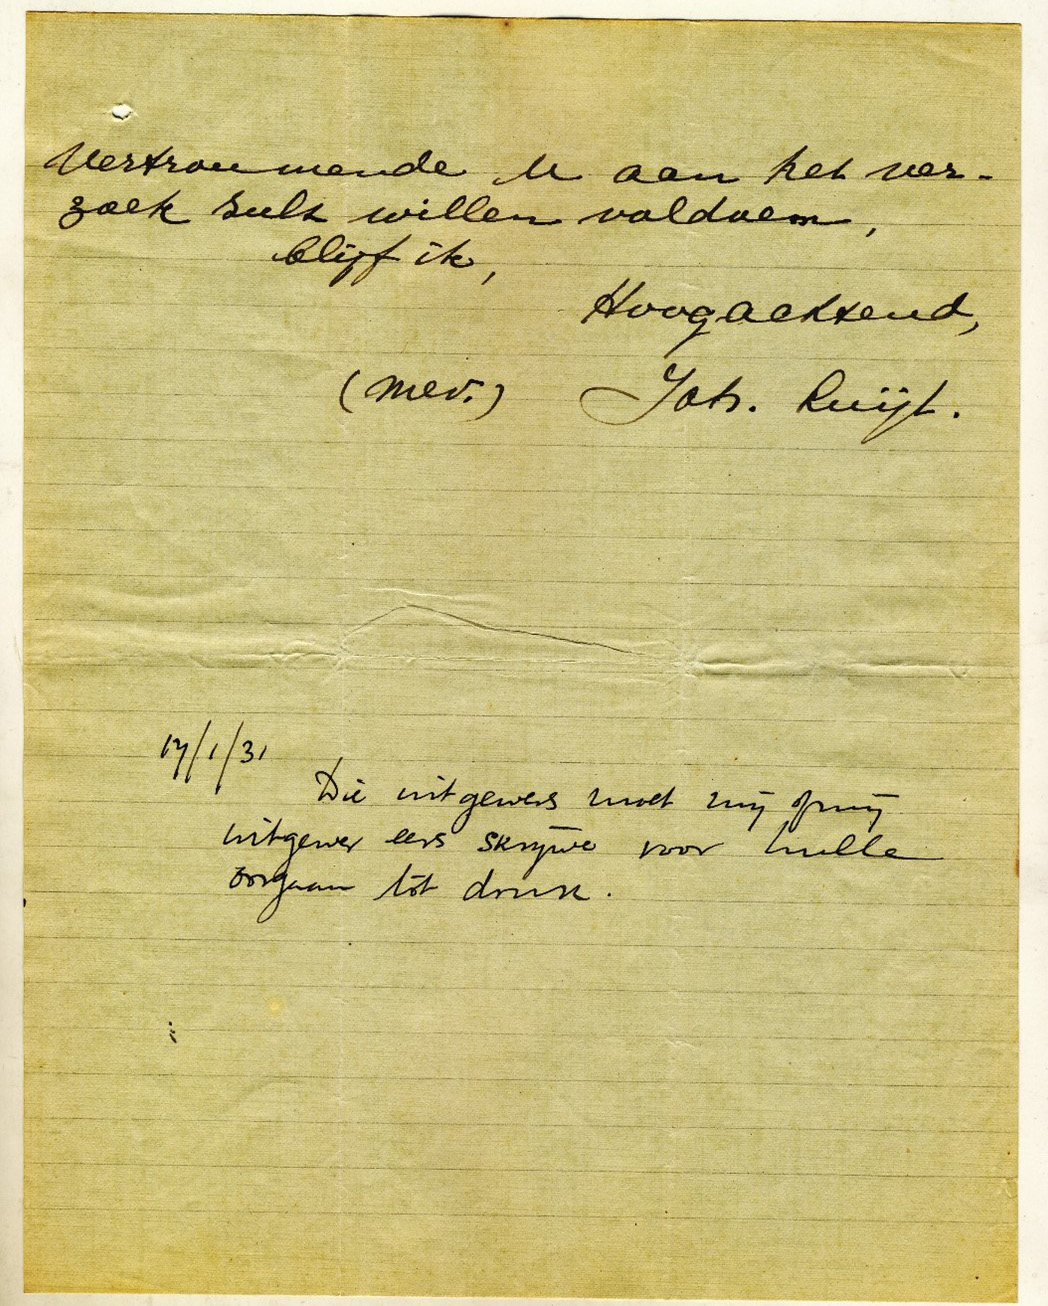 Vertrouwende U aan het ver-
zoek sult willen voldoen,
blijf ik,
Hoogachtend,
(Mev.) Joh. Luijt.
17/1/31
Die uitgewers moet mij of mij
uitgewer eers skrijwe voor hulle
oorgaan tot druk.